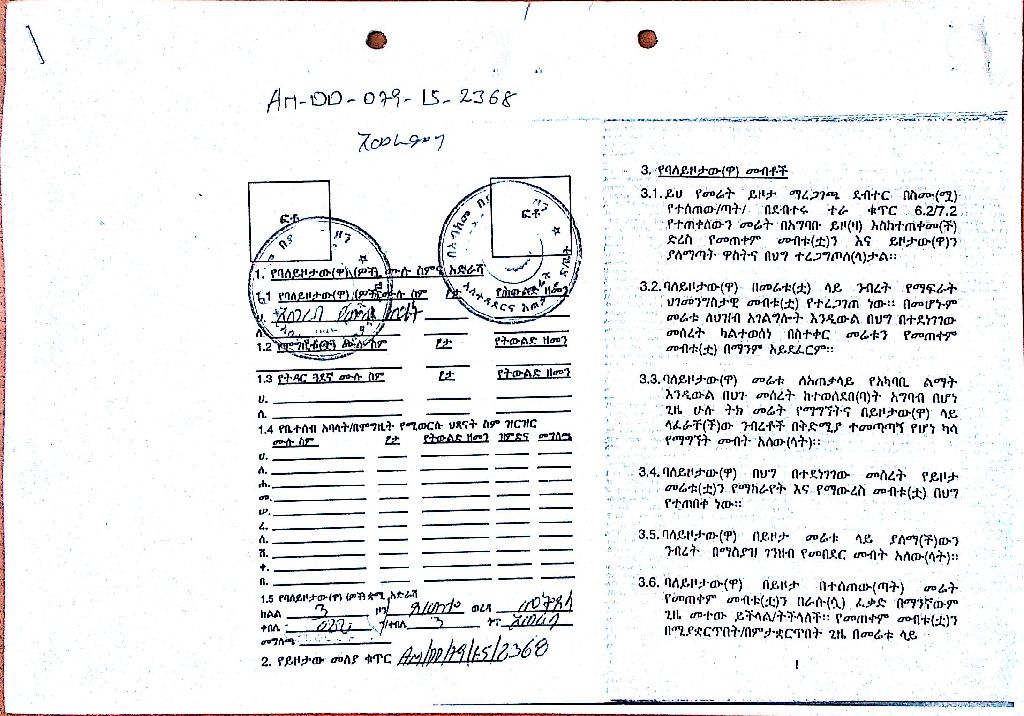 AM-DD-079-15-2368
ፎቶ
ፎቶ
1. የባለይዞታው(ዋ)(ዎች) ሙሉ ስምና አድራሻ
1.1 የባለይዞታው(ዋ)(ዎች) ሙሉ ስም ፆታ የትውልድ ዘመን
ሀ.
ለ.
1.2 የሞግዚቱ(ቷ) ሙሉ ስም ፆታ የትውልድ ዘመን
1.3 የትዳር ጓደኛ ሙሉ ስም ፆታ የትውልድ ዘመን
ሀ.
ለ.
1.4 የቤተሰብ አባላት/በሞግዚት የሚወርሱ ህጻናት ስም ዝርዝር
ሙሉ ስም ፆታ የትውልድ ዘመን ዝምድና መግለጫ
ሀ.
ለ.
ሐ.
መ.
ሠ.
ረ.
ሰ.
ሸ.
ቀ.
በ.
1.5 የባለይዞታው(ዋ)(ዎች) ቋሚ አድራሻ
ክልል 3 ዞን ወረዳ
ቀበሌ 3
መግለጫ
2. የይዞታው መለያ ቁጥር AM/DD/79/15/2368
3. የባለይዞታው(ዋ) መብቶች
3.1. ይህ የመሬት ይዞታ ማረጋገጫ ደብተር በስሙ(ሟ)
የተሰጠው/ጣት/ በደብተሩ ተራ ቁጥር 6.2/7.2
የተጠቀሰውን መሬት በአግባቡ ይዞ(ዛ) እስከተጠቀመ(ች)
ድረስ የመጠቀም መብቱ(ቷ)ን እና ይዞታው(ዋ)ን
ያለማጣት ዋስትና በህግ ተረጋግጦለ(ላ)ታል።
3.2. ባለይዞታው(ዋ) በመሬቱ(ቷ) ላይ ንብረት የማፍራት
ህገመንግስታዊ መብቱ(ቷ) የተረጋገጠ ነው። በመሆኑም
መሬቱ ለህዝብ አገልግሎት እንዲውል በህግ በተደነገገው
መሰረት ካልተወሰነ በስተቀር መሬቱን የመጠቀም
መብቱ(ቷ) በማንም አይደፈርም።
3.3. ባለይዞታው(ዋ) መሬቱ ለአጠቃላይ የአካባቢ ልማት
እንዲውል በህጉ መሰረት ከተወሰደበ(ባ)ት አግባብ በሆነ
ጊዜ ሁሉ ትክ መሬት የማግኘትና በይዞታው(ዋ) ላይ
ላፈራቸ(ች)ው ንብረቶች በቅድሚያ ተመጣጣኝ የሆነ ካሳ
የማግኘት መብት አለው(ላት)።
3.4. ባለይዞታው(ዋ) በህግ በተደነገገው መሰረት የይዞታ
መሬቱ(ቷ)ን የማከራየት እና የማውረስ መብቱ(ቷ) በህግ
የተጠበቀ ነው።
3.5. ባለይዞታው(ዋ) በይዞታ መሬቱ ላይ ያለማ(ች)ውን
ንብረት በማስያዝ ገንዘብ የመበደር መብት አለው(ላት)።
3.6. ባለይዞታው(ዋ) በይዞታ በተሰጠው(ጣት) መሬት
የመጠቀም መብቱ(ቷ)ን በራሱ(ሷ) ፈቃድ በማንኛውም
ጊዜ መተው ይችላል/ትችላለች። የመጠቀም መብቱ(ቷ)ን
በሚያቋርጥበት/በምታቋርጥበት ጊዜ በመሬቱ ላይ
1